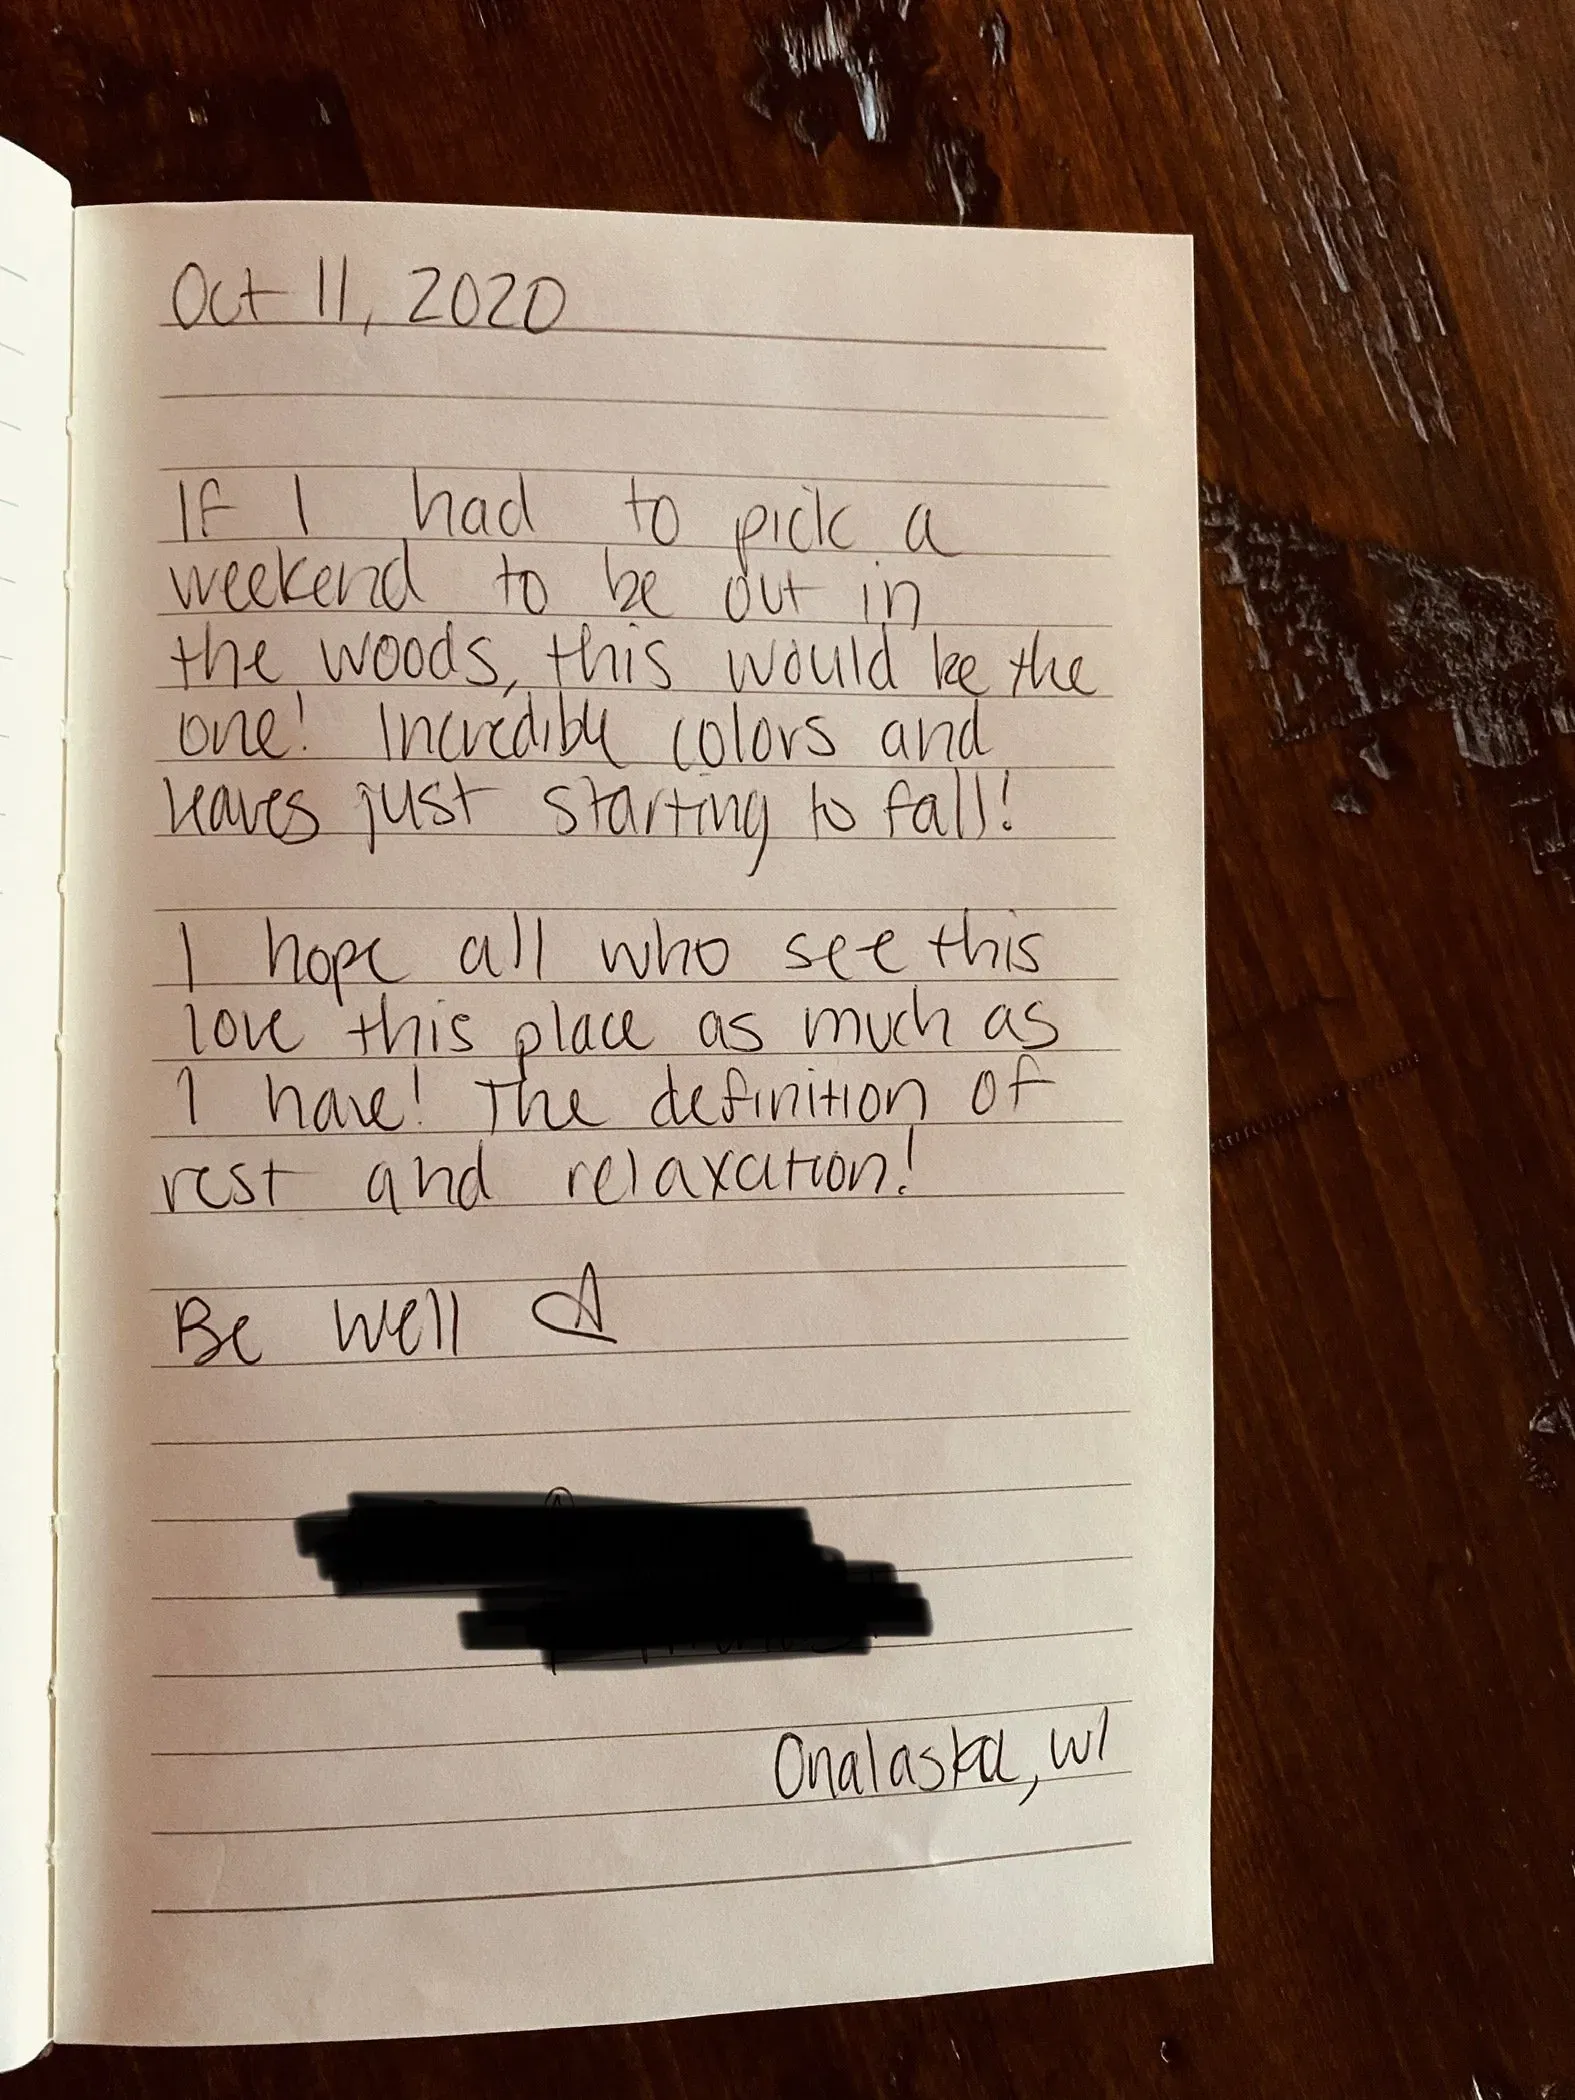 Oct 11, 2020
If I had to pick a
weekend to be out in
the woods, this would be the
one! Incredible colors and
leaves just starting to fall!
I hope all who see this
love this place as much as
I have! The definition of
rest and relaxation!
Be well
Onalaska, WI